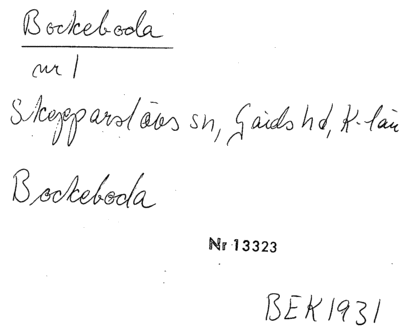 Bockeboda
nr 1
Skepparslövs sn, Gärds hd, K-län
Bockeboda
Nr 13323
BEK 1931